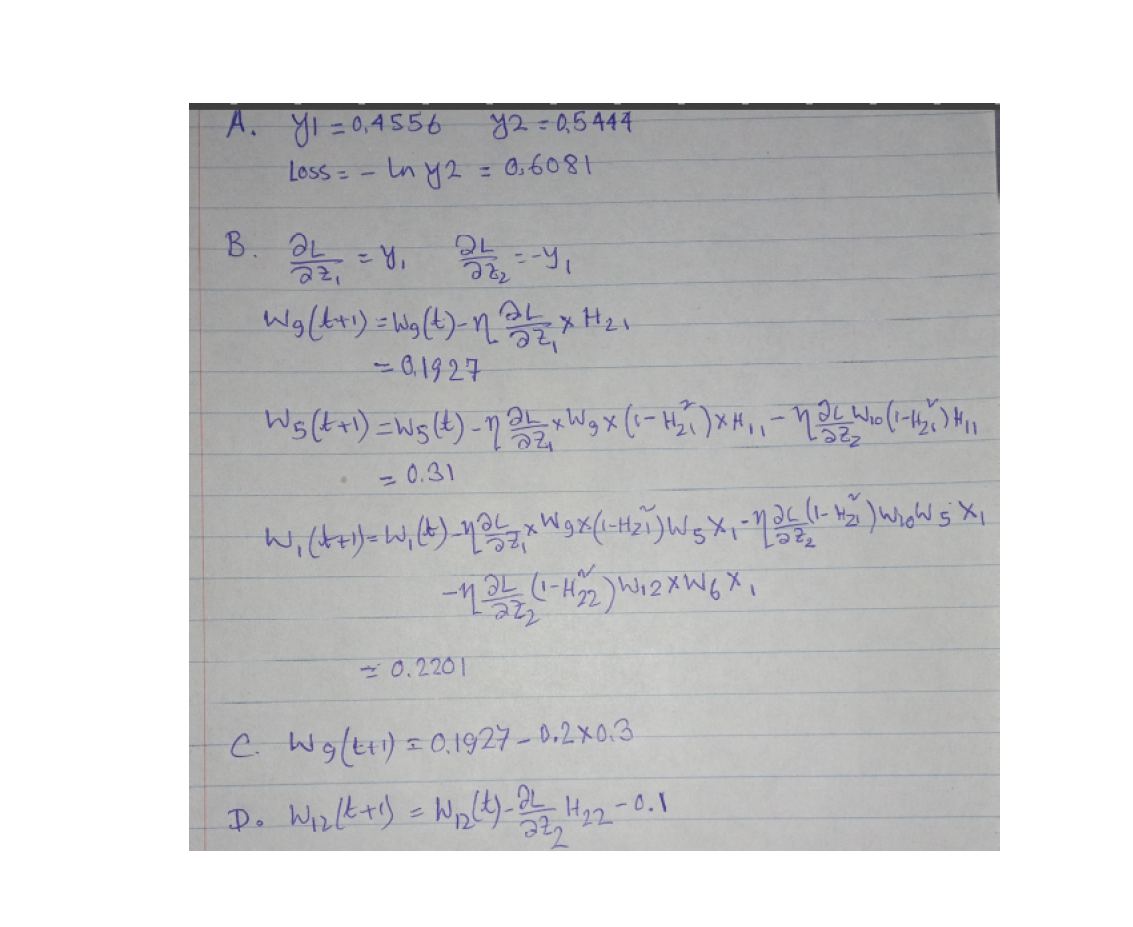 A. y1 = 0,4556 y2 = 0,5444
Loss = - ln y2 = 0,6081
B. ∂L/∂z₁ = y₁ ∂L/∂z₂ = -y₁
W₉(t+1) = W₉(t) - η ∂L/∂z₁ × H₂₁
= 0,1927
W₅(t+1) = W₅(t) - η ∂L/∂z₁ × W₉ × (1 - H₂₁²) × H₁₁ - η ∂L/∂z₂ W₁₀ (1-H₂₁²) H₁₁
= 0.31
W₁(t+1) = W₁(t) - η ∂L/∂z₁ × W₉ × (1-H₂₁²) W₅ X₁ - η ∂L/∂z₂ (1-H₂₁²) W₁₀ W₅ X₁
- η ∂L/∂z₂ (1-H₂₂²) W₁₂ × W₆ X₁
= 0.2201
C. W₉(t+1) = 0,1927 - 0.2 × 0.3
D. W₁₂(t+1) = W₁₂(t) - ∂L/∂z₂ H₂₂ - 0.1